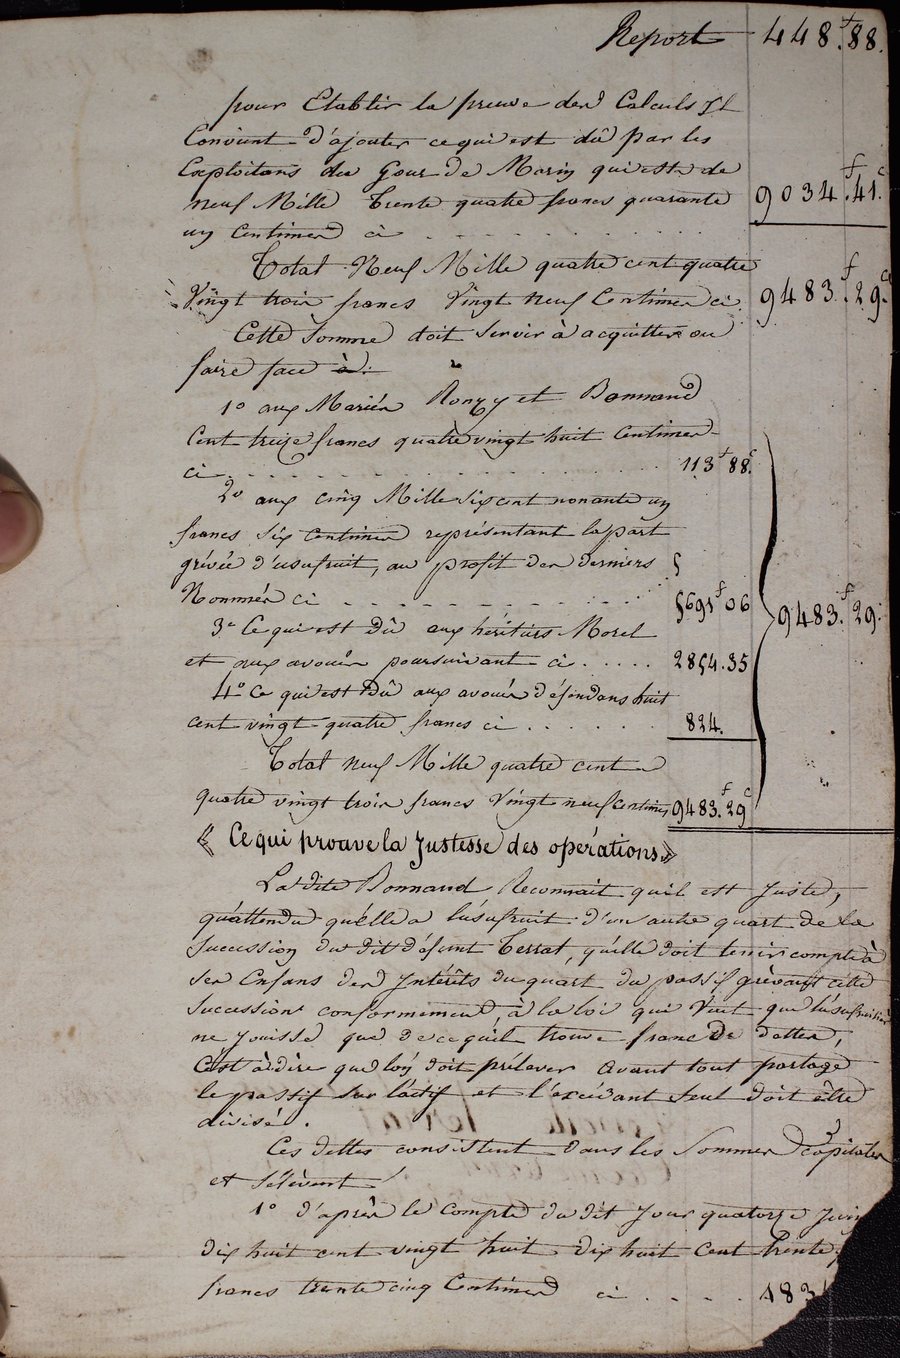 Report 448.f 88.
pour Etablir la preuve des Calculs Il
Convient d'ajouter ce qui est dû par les
Exploitans du Gour de Marin qui est de
neuf Mille Trente quatre francs quarante 9034.f 41.c
un Centimes ci . . . . . . . . . . .
Total Neuf Mille quatre cent quatre
Vingt trois francs Vingt neuf Centimes ci 9483.f 29.c
Cette Somme doit servir à acquitter ou
faire face à:
1º aux Mariés Ronzy et Bonnand
Cent treize francs quatre vingt huit Centimes
ci . . . . . . . . . . . 113f 88.c
2º aux cinq Mille six cent nonante un
francs Six Centimes représentant la part
grévée d'usufruit, au profit des derniers 5
Nommés ci . . . . . . . . . 5691f 06 9483.f 29.
3º Ce qui est Dû aux héritiers Morel
et aux avoués poursuivant ci . . . . . 2854.35
4º Ce qui est Dû aux avoués défendans huit
cent vingt quatre francs ci . . . . . . . 824.
Total neuf Mille quatre cent
quatre vingt trois francs Vingt neuf Centimes 9483.f 29c
« Ce qui prouve la Justesse des opérations »
La dite Bonnand Reconnait qu'il est Juste,
qu'attendu qu'elle a l'usufruit d'un autre quart de la
Succession du dit défunt Terrat, qu'elle doit tenir compte à
ses Enfans des Intérêts du quart du passif grèvant cette
Succession conformement, à la loi qui Veut que l'usufruitier
ne Jouisse que de ce qu'il trouve franc de dettes,
C'est à dire que l'on doit prélever avant tout partage
le passif sur l'actif et l'excédant seul doit être
divisé.
Ces dettes consistent dans les Sommes capitales
et s'élèvent
1º d'après le Compte du dit Jour quatorze Juin
dix huit cent vingt huit dix huit Cent trente
francs trente cinq Centimes ci . . . . 183